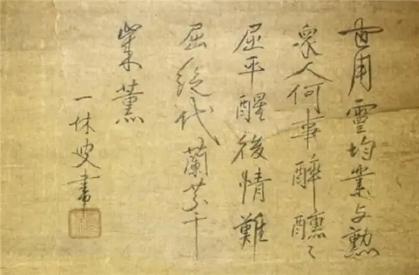 用靈均業与勲
衆人何事醉醺〻
屈平醒後情難
屈絶代蘭芬千
薫
一叟書